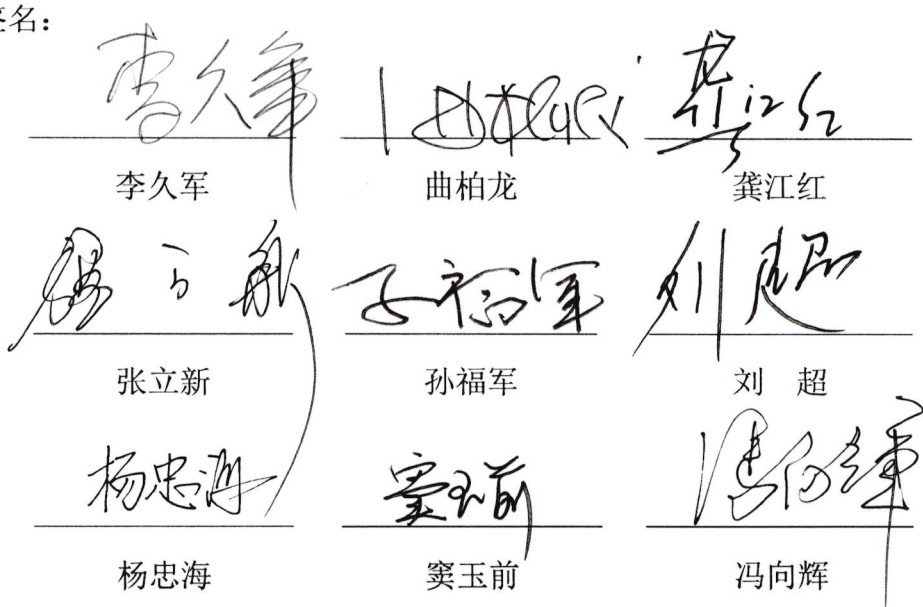 签名：
李久军 曲柏龙 龚江红
李久军 曲柏龙 龚江红
张立新 孙福军 刘超
张立新 孙福军 刘 超
杨忠海 窦玉前 冯向辉
杨忠海 窦玉前 冯向辉